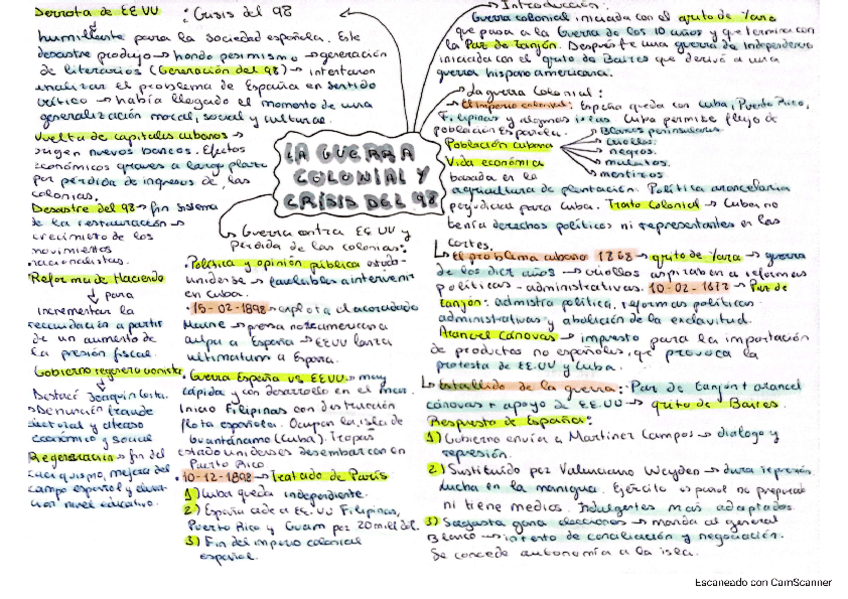 LA GUERRA
COLONIAL Y
CRISIS DEL 98
→ Introducción:
Guerra colonial iniciada con el grito de Yara
que pasa a la Guerra de los 10 años y que termina con
la Paz de Zanjón. Después tuvo guerra de Independencia
iniciada con el grito de Baires que derivó a una
guerra hispano americana.
→ La guerra Colonial:
→ El imperio colonial: España queda con Cuba, Puerto Rico,
Filipinas y algunas islas Cuba permite flujo de
población Española.
Población cubana
→ Blancos peninsulares.
→ criollos.
→ negros.
→ mulatos.
→ mestizos
Vida económica
basada en la
agricultura de plantación. Política arancelaria
perjudicial para Cuba. Trato Colonial → Cuba no
tenía derechos políticos ni representantes en las
cortes.
↳ el problema cubano 1868 → grito de Yara → guerra
de los diez años → criollos aspiraban a reformas
políticas - administrativas. 10-02-1878 → Paz de
Zanjón: admistra política, reformas políticas
administrativas y abolición de la esclavitud.
Arancel Cánovas → impuesto para la importación
de productos no españoles, que provoca la
protesta de EE.UU y Cuba.
↳ Estallido de la guerra: Paz de Zanjón + arancel
cánovas + apoyo de EE.UU → grito de Baires.
Respuesta de España:
1) Gobierno envía a Martínez Campos → dialogo y
represión.
2) Sustituido por Valeriano Weyden → dura represión
lucha en la manigua. Ejército español no preparado
ni tiene medios. Indulgentes mas adaptados.
3) Sagasta gana elecciones → manda al general
Blanco → intento de conciliación y negociación.
Se concede autonomía a la isla.
↳ Guerra contra EE UU y
Pérdida de las colonias:
· Política y opinión pública estado-
unidense → favorables a intervenir
en Cuba.
· 15-02-1898 → explota el acorazado
Maine → prensa norteamericana
culpa a España → EEUU lanza
ultimatum a España.
· Guerra España vs EEUU → muy
rápida y con desarrollo en el mar.
Inicio Filipinas con destrucción
flota española. Ocupan la isla de
Guantánamo (Cuba). Tropas
estadounidenses desembarcan en
Puerto Rico
· 10-12-1898 → Tratado de París
1) Cuba queda independiente.
2) España cede a EE.UU Filipinas,
Puerto Rico y Guam por 20 mill dol.
3) Fin del imperio colonial
español.
Derrota de EEUU : Crisis del 98
humillante para la sociedad española. Este
desastre produjo → hondo pesimismo → generación
de literarios (Generación del 98) → intentaron
analizar el problema de España en sentido
crítico → había llegado el momento de una
generalización moral, social y cultural.
Vuelta de capitales cubanos →
surgen nuevos bancos. Efectos
económicos graves a largo plazo
por pérdida de ingresos de las
colonias.
Desastre del 98 → fin sistema
de la restauración →
crecimiento de los
movimientos
nacionalistas.
Reforma de Hacienda
↓ para
incrementar la
recaudación a partir
de un aumento de
la presión fiscal.
Gobierno regeneracionista
Destacó Joaquín Costa.
→ Denuncian fraude
electoral y atraso
económico y social
Regeneración → fin del
caciquismo, mejora del
campo español y eleva-
ción nivel educativo.
Escaneado con CamScanner